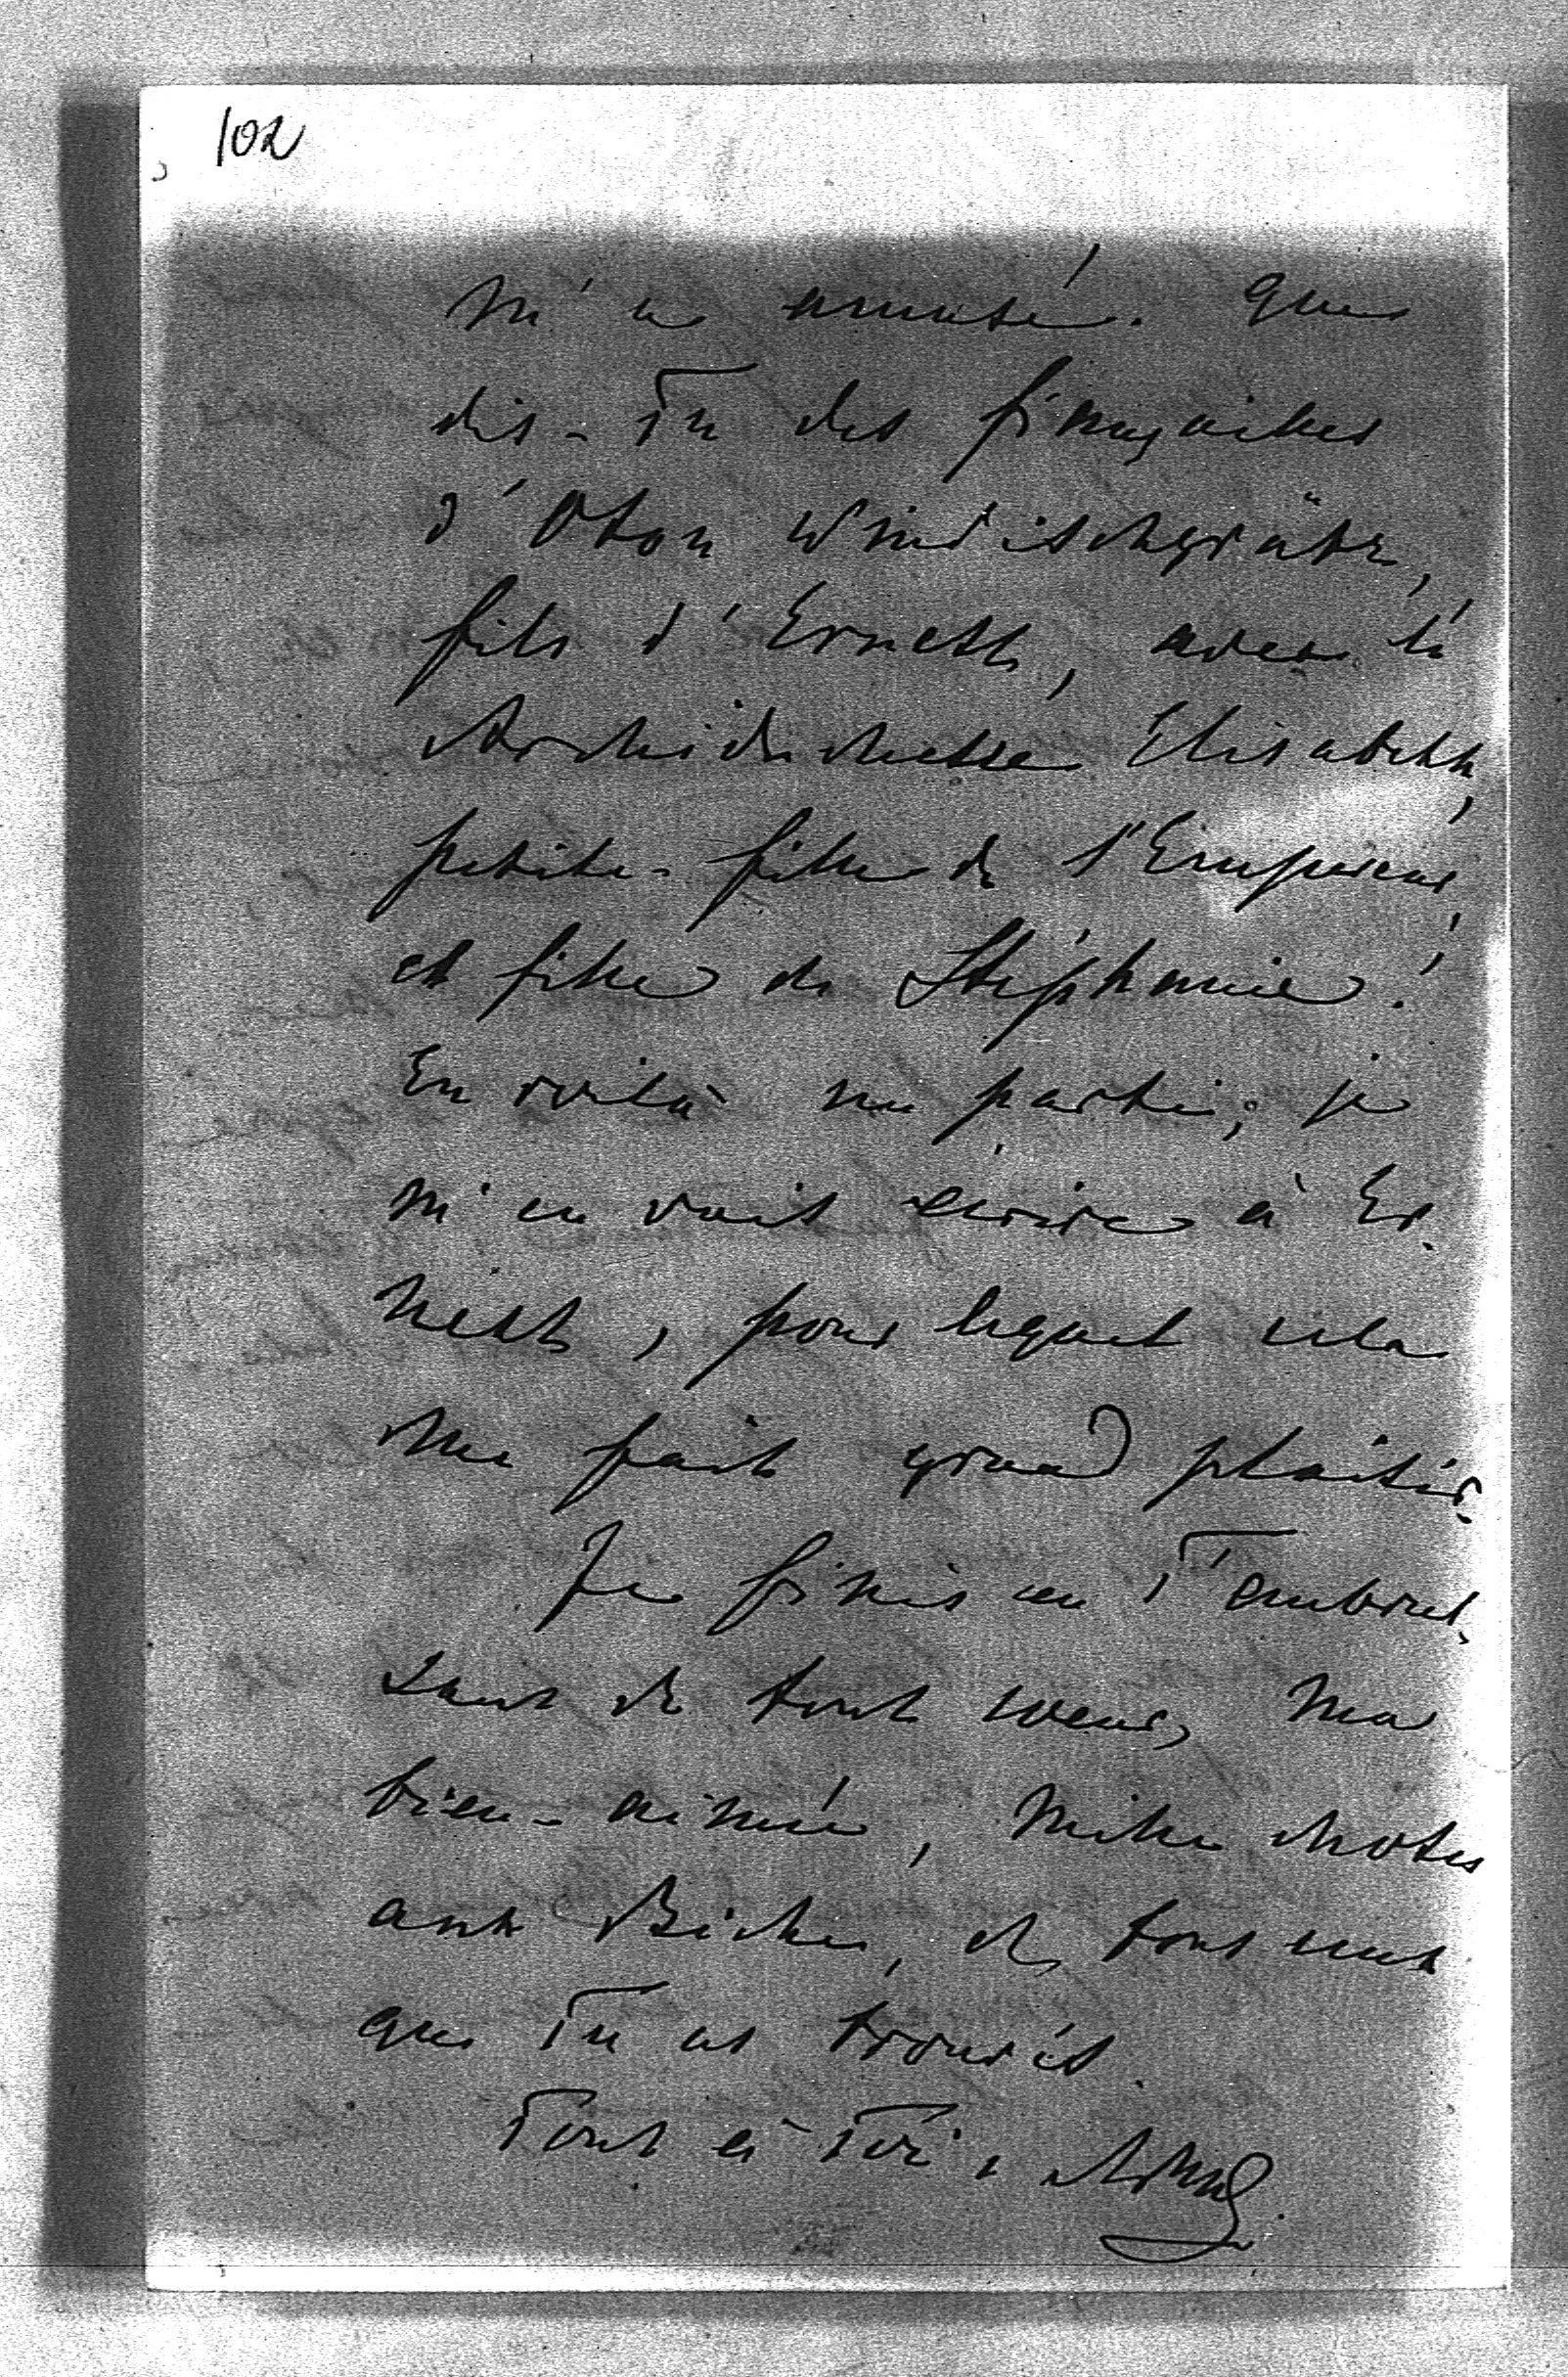 102
m'a amusé. Que
dis-Tu des fiançailles
d'Oton Windischgrätz,
fils d'Ernest, avec l'
Archiduchesse Elisabeth,
petite-fille de l'Empereur,
et fille de Stéphanie!
En voilà un parti; je
m'en vais écrire à Er-
nest, pour lequel cela
me fait grand plaisir.
Je finis en T'embras-
sant de tout coeur, ma
bien-aimée, mille choses
aux Biches, et tous ceux
que Tu as trouvés.
Tout à Toi,